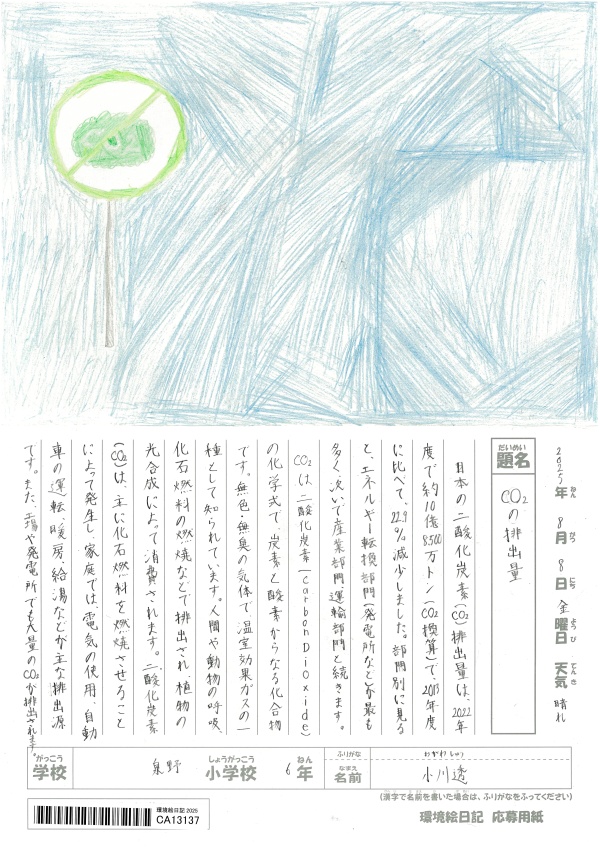 2025年 8月 8日 金曜日 天気 晴れ
ねん がつ にち ようび てんき
だいめい
題名
CO₂の排出量
日本の二酸化炭素(CO₂排出量は、2022年
度で約10億8,500万トン(CO₂換算)で、2013年度
に比べて、22.9%減少しました。部門別に見る
と、エネルギー転換部門(発電所など)が最も
多く、次いで産業部門、運輸部門と続きます。
CO₂は、二酸化炭素(Carbon Dioxide)
の化学式で、炭素と酸素からなる化合物
です。無色・無臭の気体で、温室効果ガスの一
種として知られています。人間や動物の呼吸、
化石燃料の燃焼などで排出され、植物の
光合成によって消費されます。二酸化炭素
(CO₂)は、主に化石燃料を燃焼させること
によって発生し、家庭では、電気の使用、自動
車の運転、暖房、給湯などが主な排出源
です。また、工場や発電所でも大量のCO₂が排出されます。
がっこう しょうがっこう ねん
学校 泉野 小学校 6年
ふりがな おがわ
なまえ
名前 小川透
(漢字で名前を書いた場合は、ふりがなをふってください)
環境絵日記 応募用紙
環境絵日記 2025
CA13137